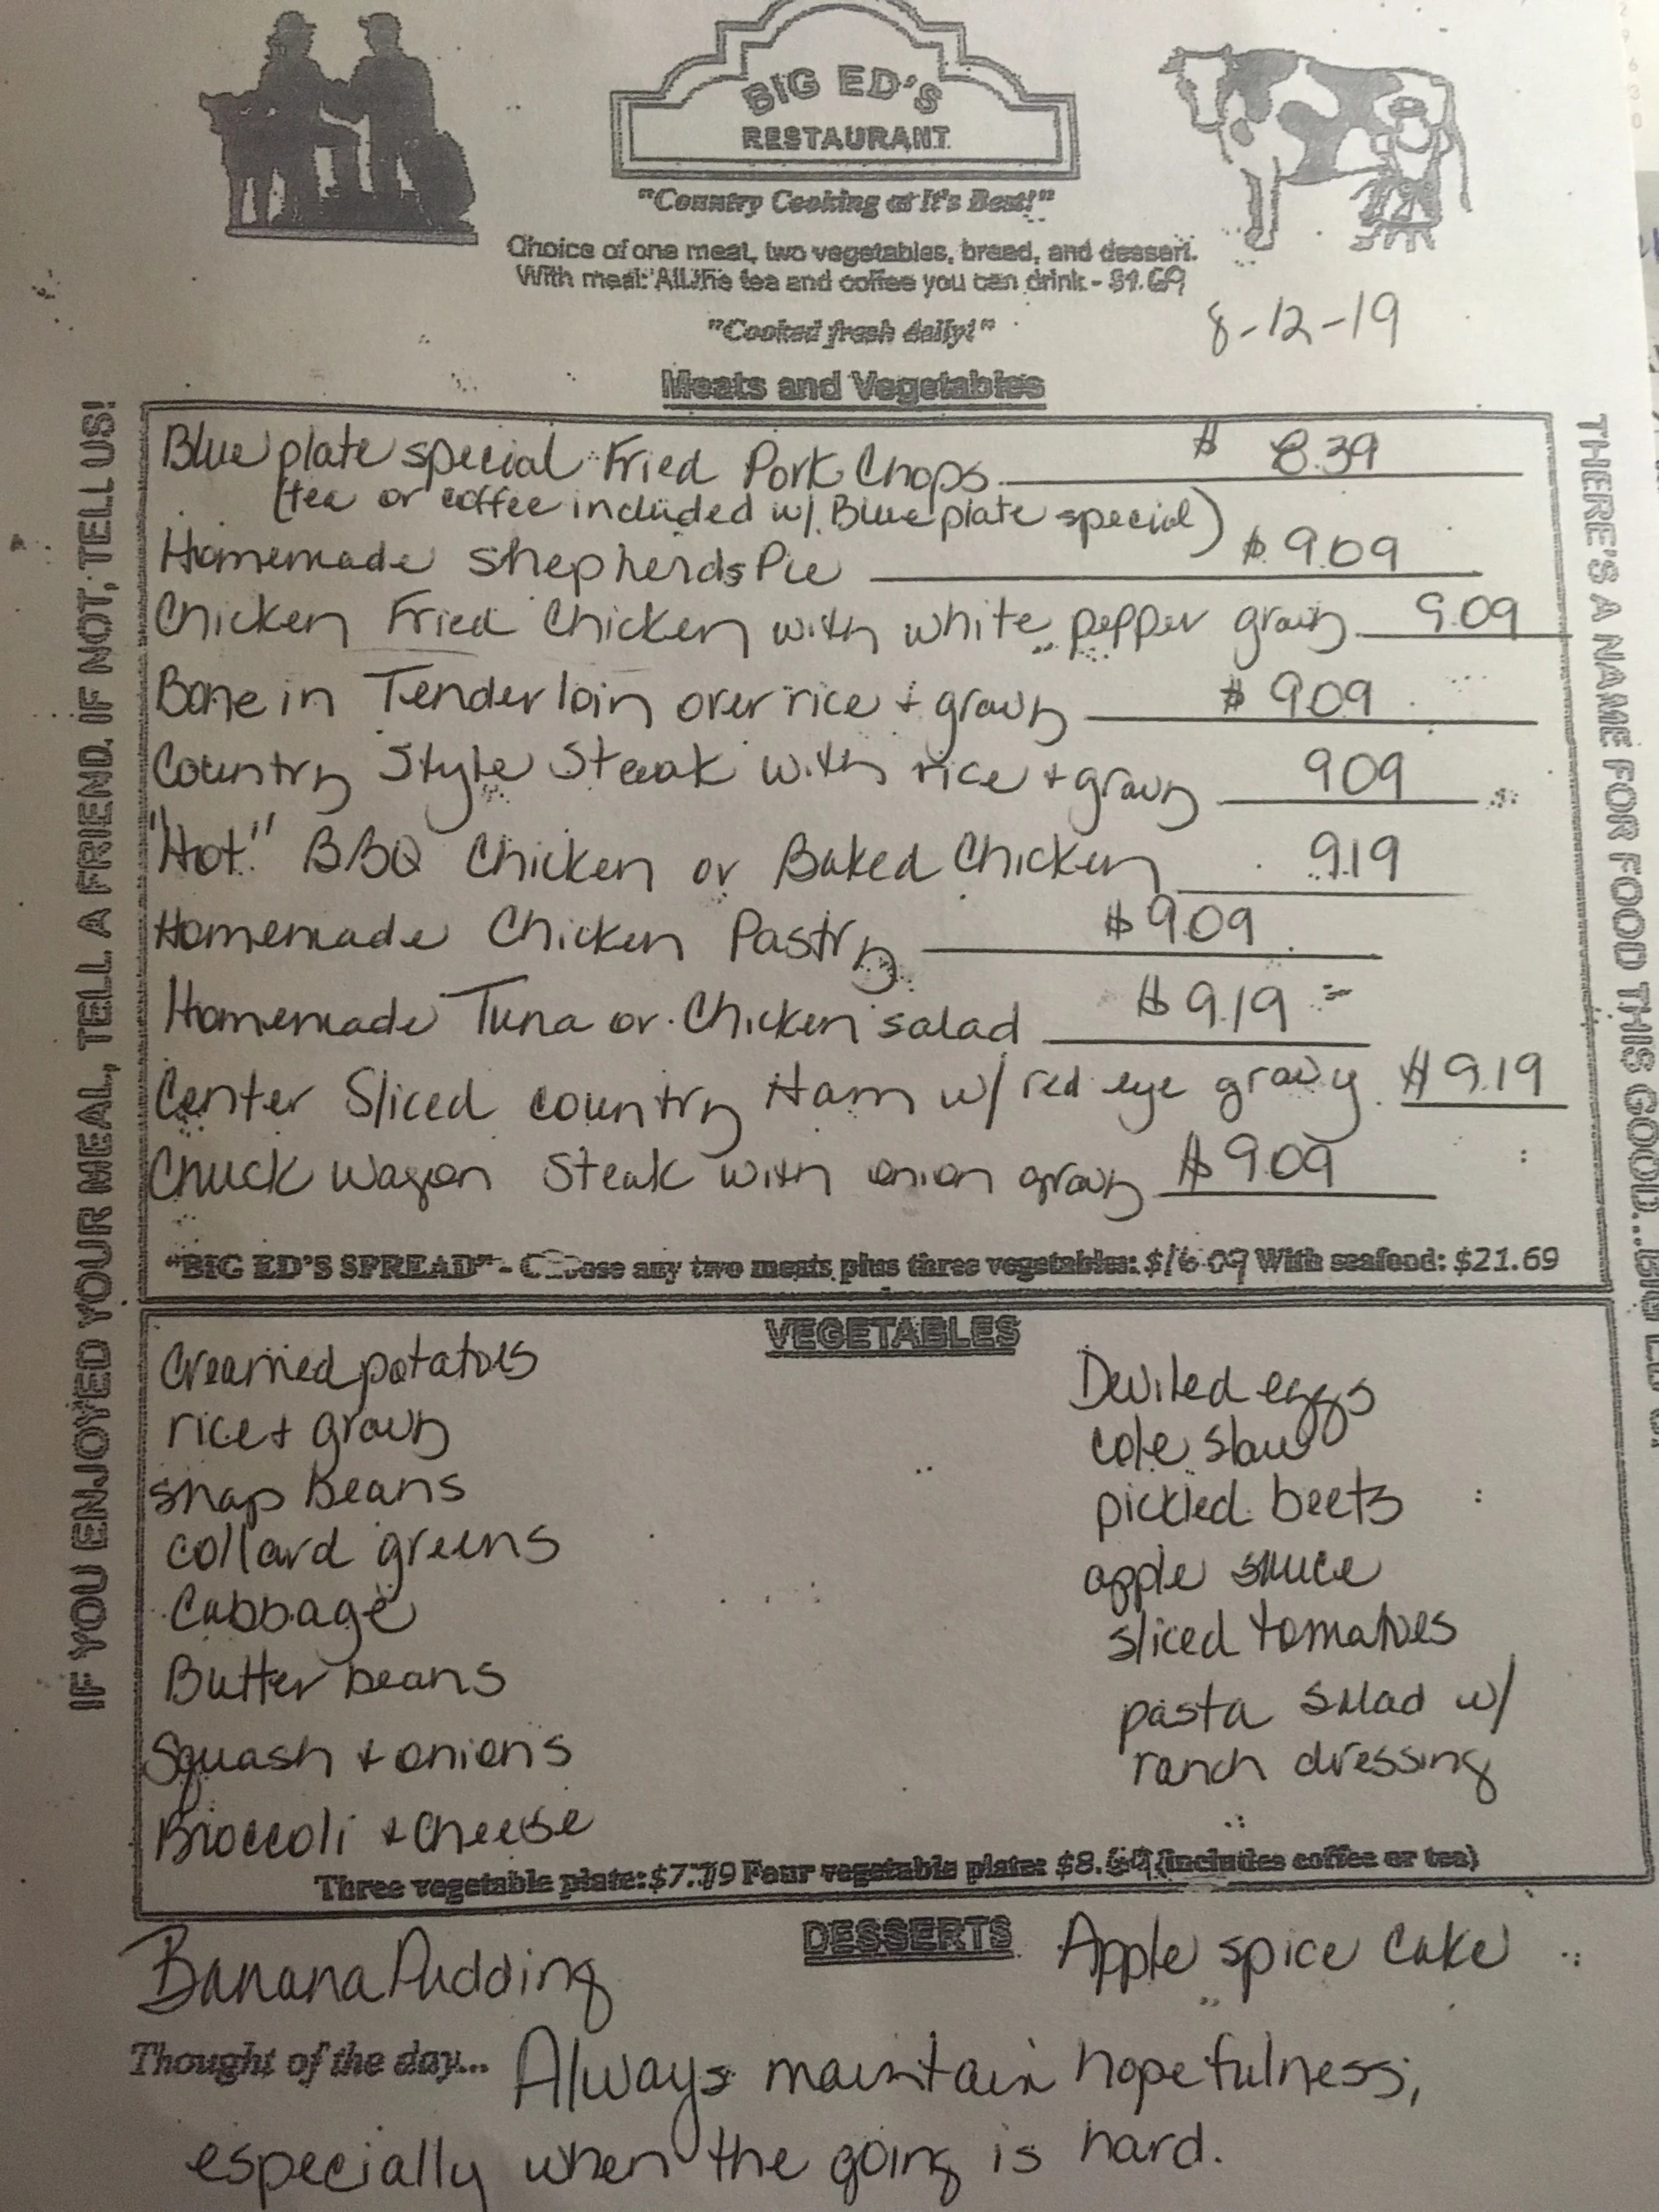 BIG ED'S
RESTAURANT
"Country Cooking at It's Best!"
Choice of one meat, two vegetables, bread, and dessert.
With meal: All the tea and coffee you can drink - $1.69
"Cooked fresh daily!"
8-12-19
Meats and Vegetables
Blue plate special Fried Pork Chops $ 8.39
(tea or coffee included w/ Blue plate special)
Homemade shepherds Pie $ 9.09
Chicken Fried Chicken with white pepper gravy 9.09
Bone in Tenderloin over rice + gravy $ 9.09
Country Style Steak with rice + gravy 909
"Hot" BBQ Chicken or Baked Chicken 9.19
Homemade Chicken Pastry $ 9.09
Homemade Tuna or Chicken salad $ 9.19
Center Sliced country Ham w/ red eye gravy $ 9.19
Chuck Wagon Steak with onion gravy $ 9.09
"BIG ED'S SPREAD" - Choose any two meats plus three vegetables: $16.09 With seafood: $21.69
VEGETABLES
Creamed potatoes
rice + gravy
snap Beans
collard greens
Cabbage
Butter beans
Squash + onions
Broccoli + cheese
Deviled eggs
cole slaw
pickled beets
apple sauce
sliced tomatoes
pasta salad w/
ranch dressing
Three vegetable plate: $7.79 Four vegetable plate: (includes coffee or tea)
DESSERTS
Banana Pudding
Apple spice cake
Thought of the day... Always maintain hopefulness;
especially when the going is hard.
IF YOU ENJOYED YOUR MEAL, TELL A FRIEND. IF NOT, TELL US!
THERE'S A NAME FOR FOOD THIS GOOD...BIG ED'S!